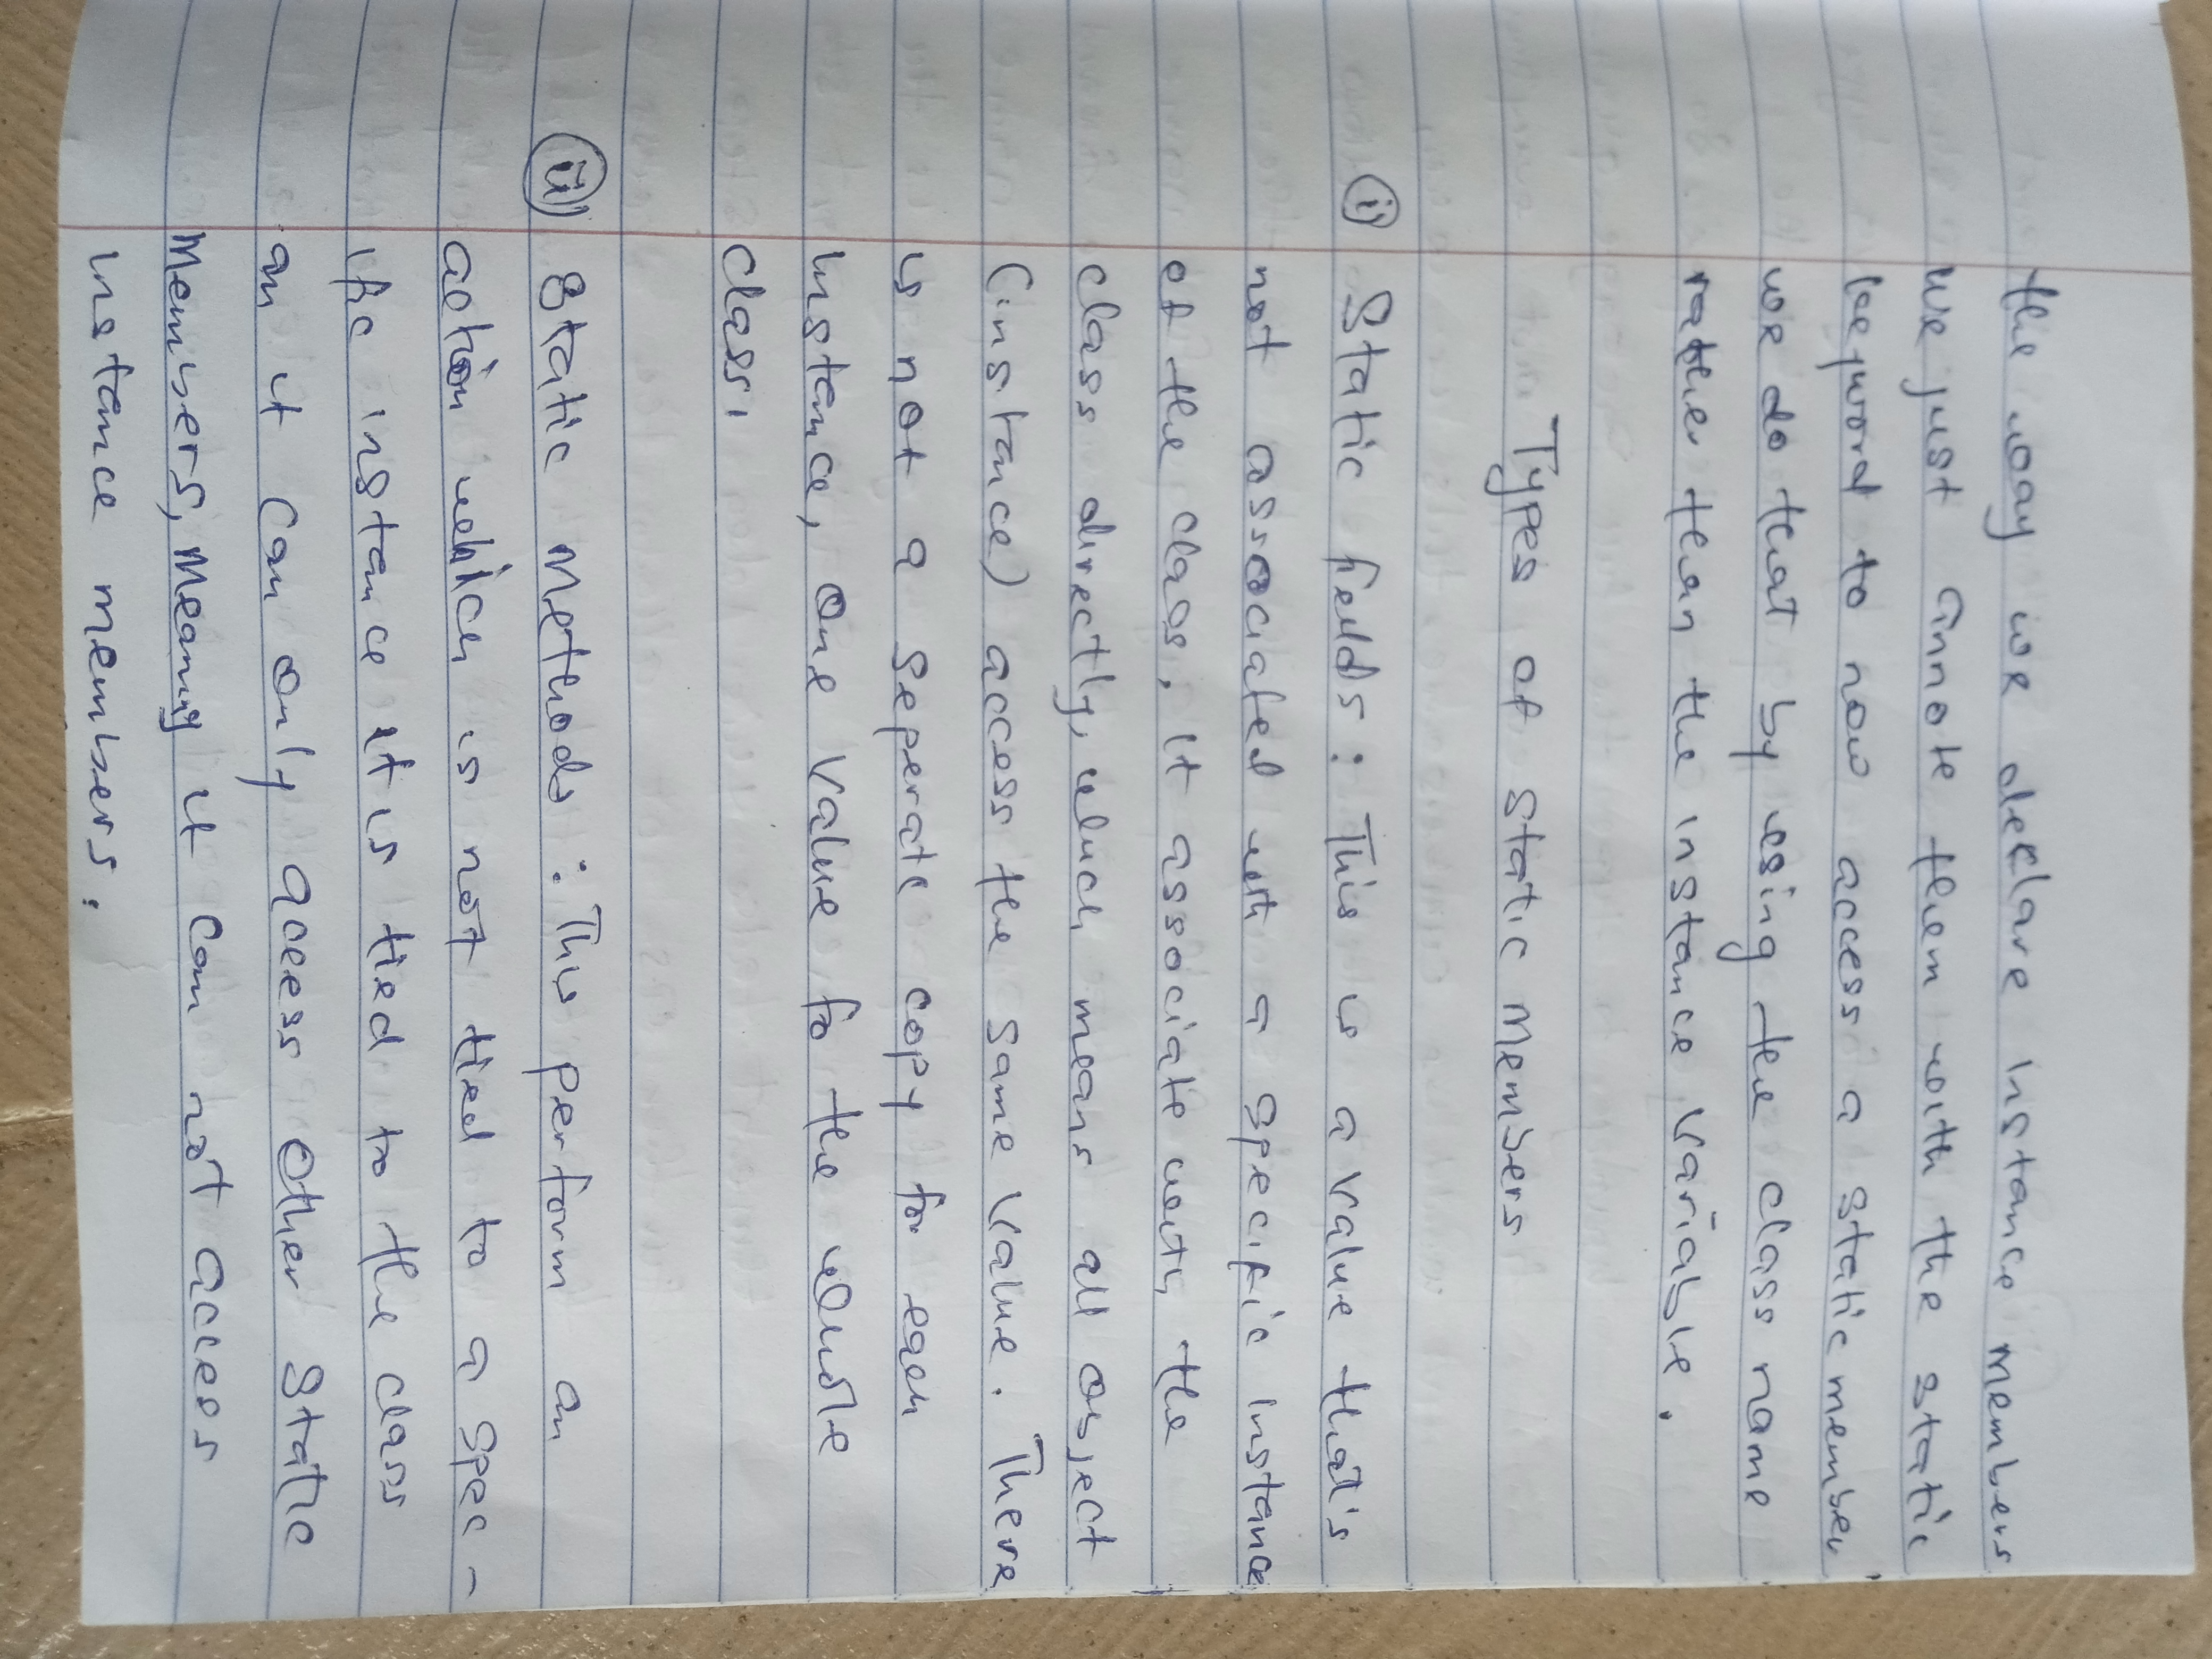 the way we declare instance members
we just annote them with the static
keyword to now access a static member
we do that by using the class name
rather than the instance variable.
Types of static members
(i) Static fields : This is a value that's
not associated with a specific instance
of the class, it associate with the
class directly, which means all object
(instance) access the same value. There
is not a seperate copy for each
instance, one value for the whole
class.
(ii) Static methods : This perform an
action which is not tied to a spec-
ific instance it is tied to the class
an it can only access other static
members, meaning it can not access
instance members.